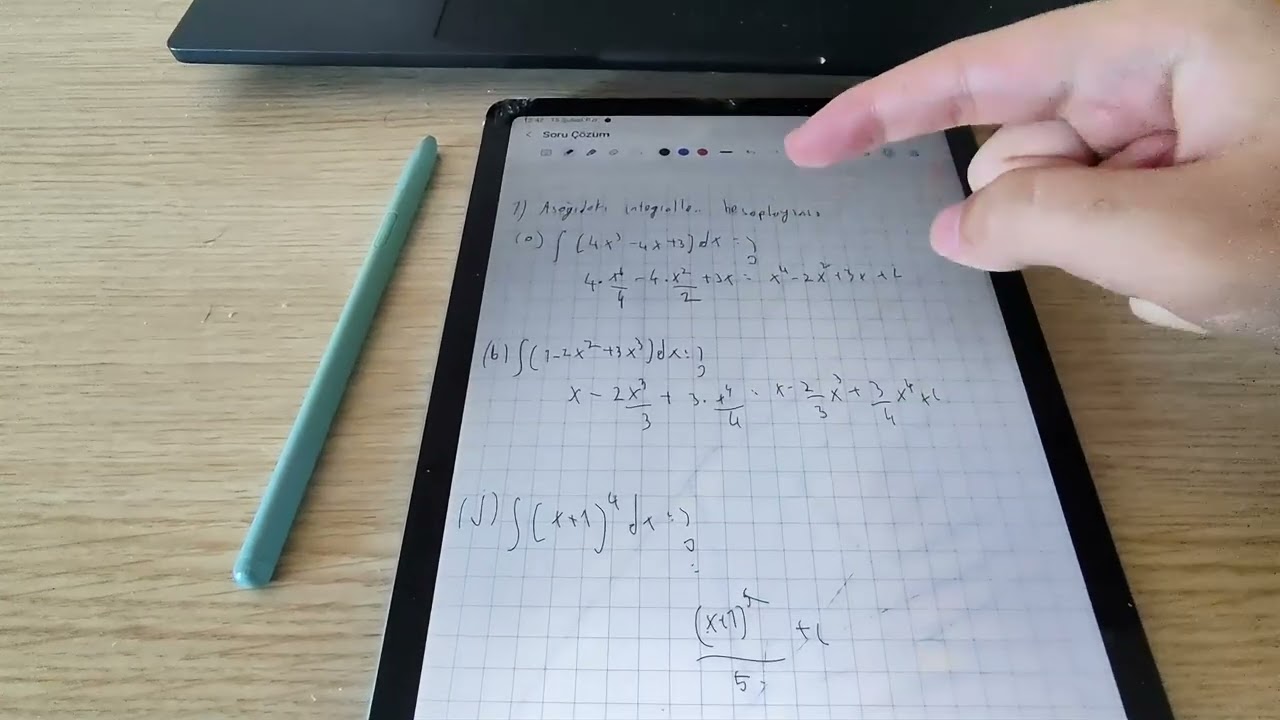 Soru Çözüm
1) Aşağıdaki integralleri hesaplayınız
(a) ∫(4x³-4x+3)dx=?
4·x⁴/4 - 4·x²/2 + 3x = x⁴-2x²+3x+c
(b) ∫(1-2x²+3x³)dx=?
x - 2x³/3 + 3·x⁴/4 = x-2/3x³+3/4x⁴+c
(j) ∫(x+1)⁴dx=?
(x+1)⁵/5 +c